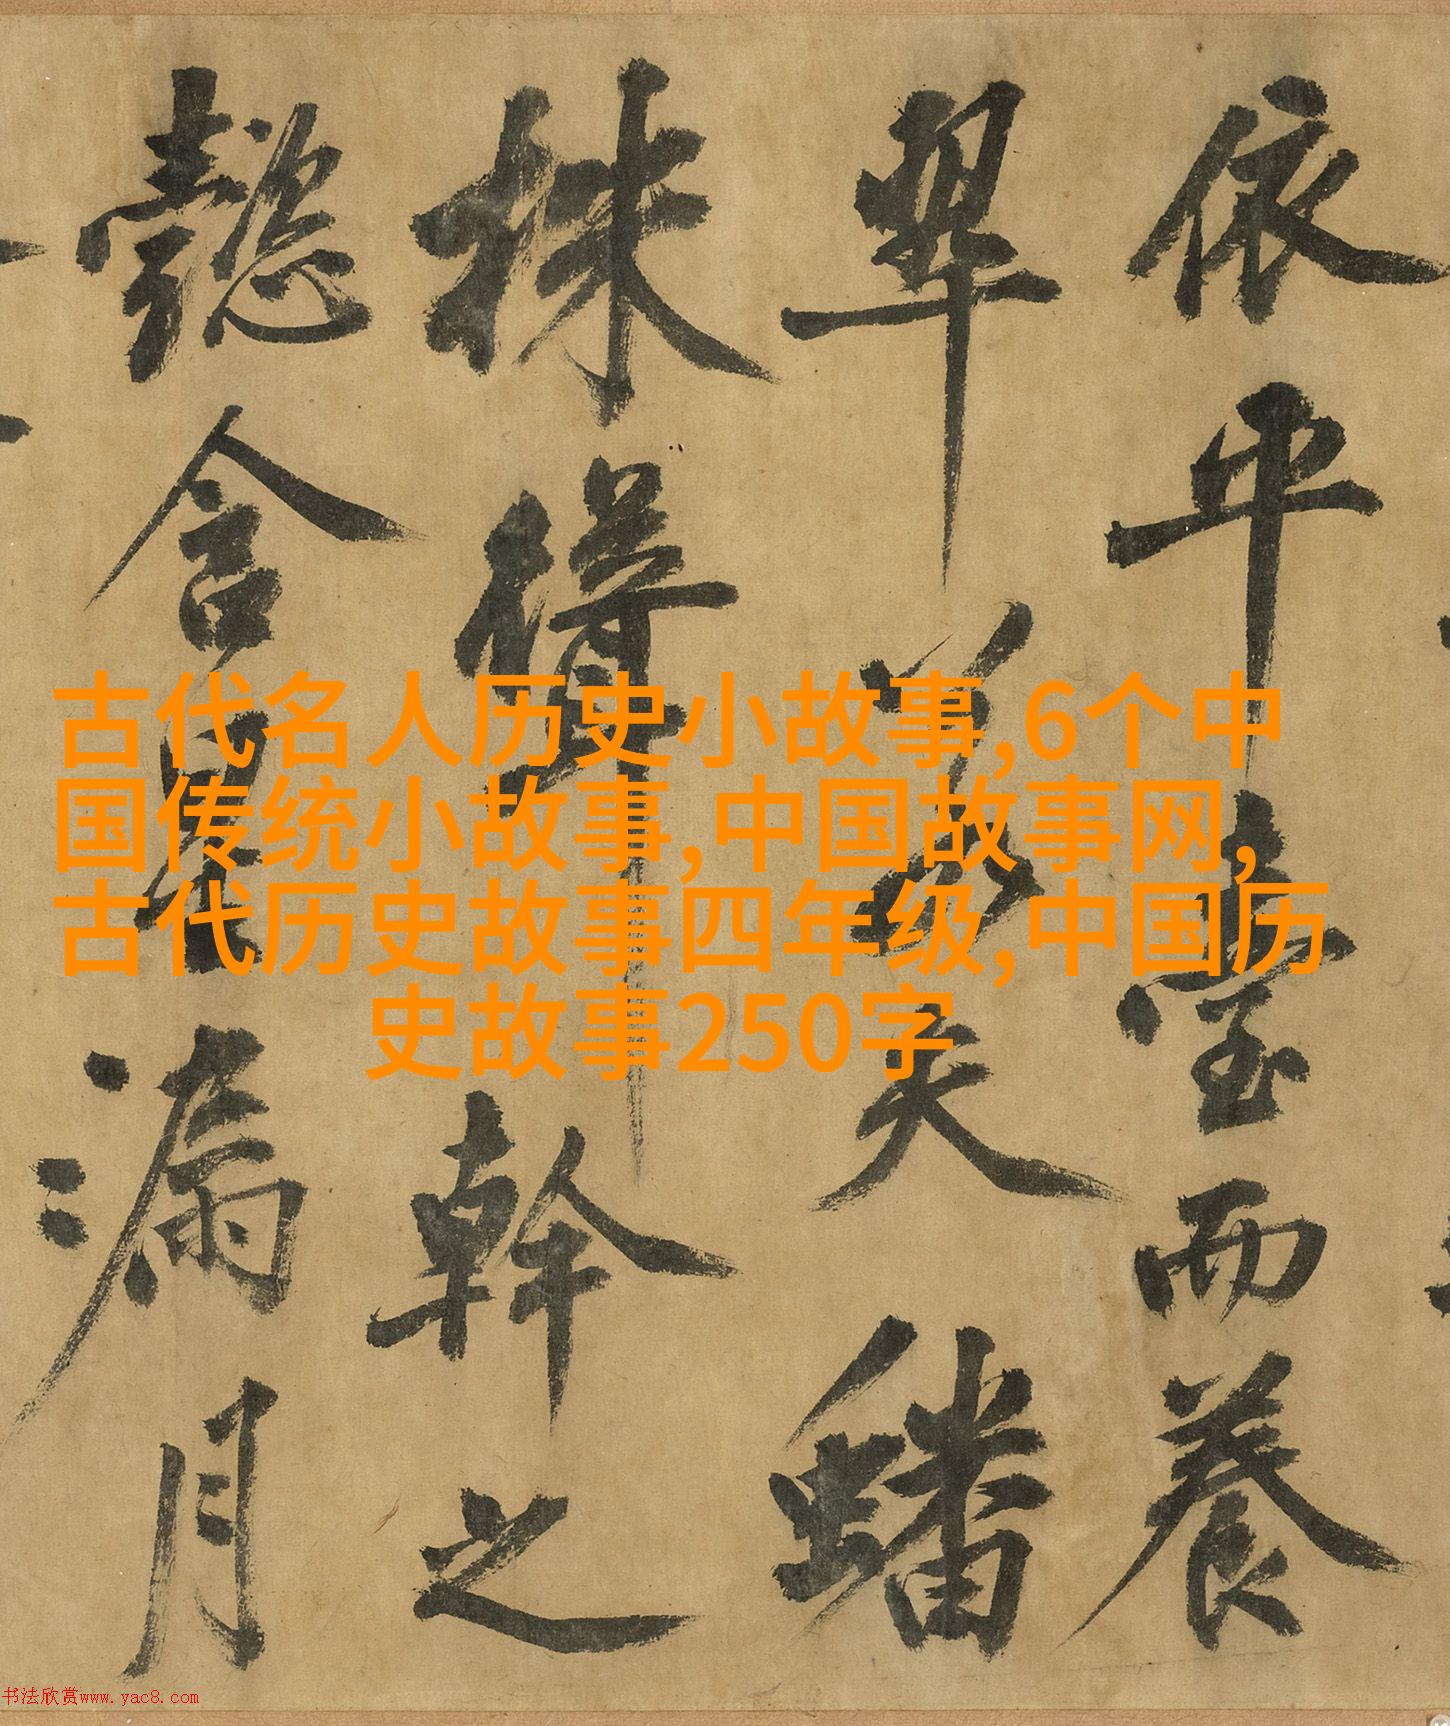 古代名人历史小故事,6个中
国传统小故事,中国故事网,
古代历史故事四年级,中国历
史故事250字
依平臺而養
翠若夫蟠
株幹之
懿含星漏月
书法欣赏www.yac8.com